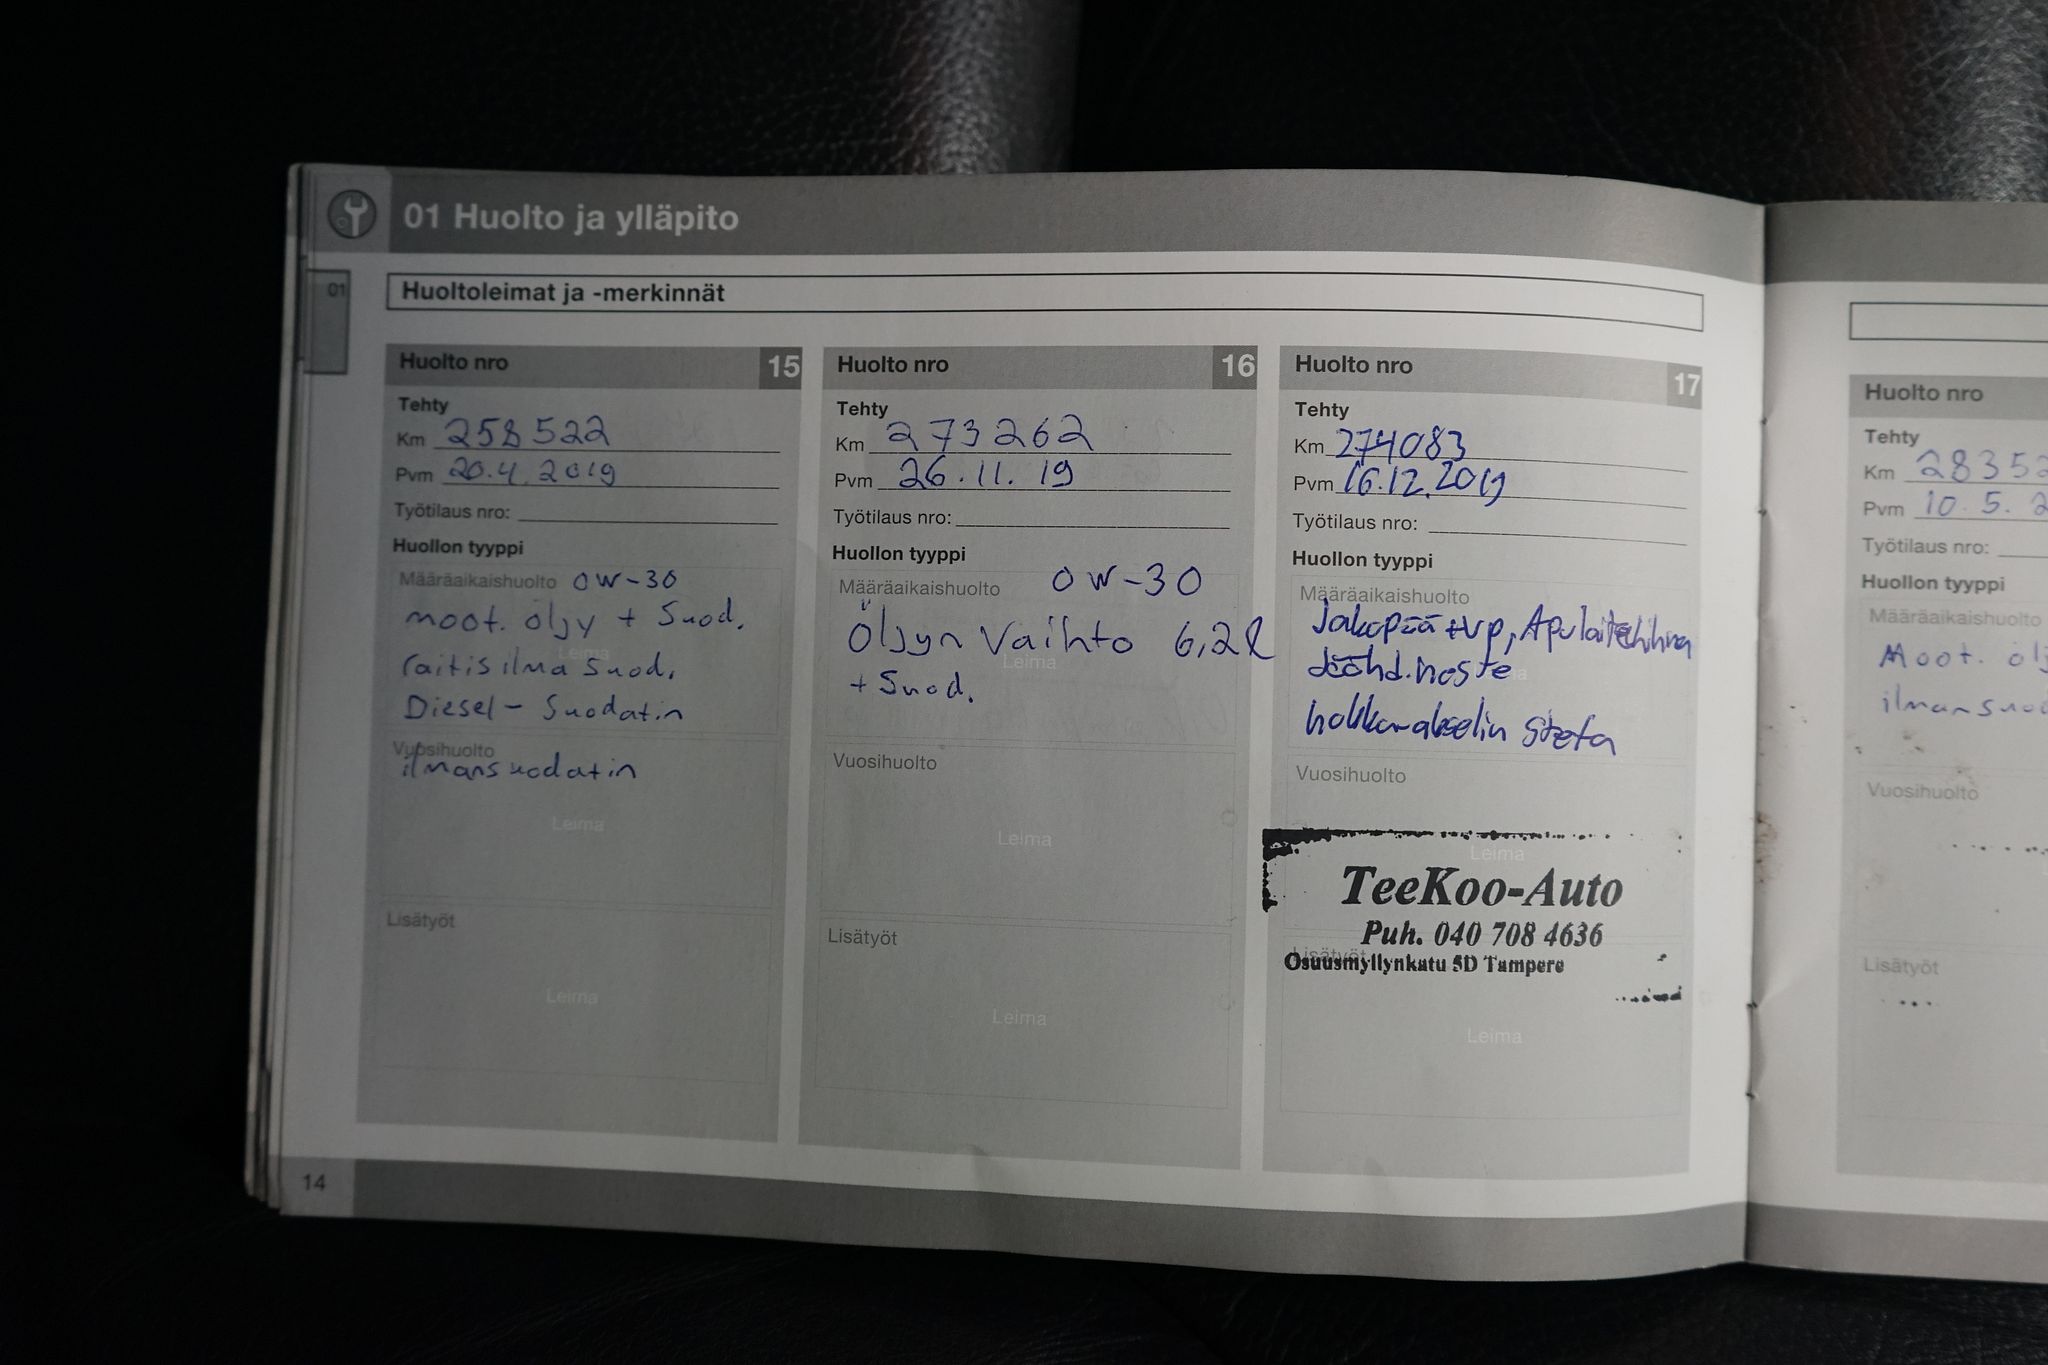 01 Huolto ja ylläpito
01
Huoltoleimat ja -merkinnät
Huolto nro 15
Tehty
Km 258522
Pvm 20.4.2019
Työtilaus nro:
Huollon tyyppi
Määräaikaishuolto 0W-30
moot. öljy + Suod.
raitisilmasuod.
Leima
Diesel - Suodatin
Vuosihuolto
ilmansuodatin
Leima
Lisätyöt
Leima
Huolto nro 16
Tehty
Km 273262
Pvm 26.11.19
Työtilaus nro:
Huollon tyyppi
Määräaikaishuolto 0W-30
Öljyn Vaihto 6,2l
Leima
+ Suod.
Vuosihuolto
Leima
Lisätyöt
Leima
Huolto nro 17
Tehty
Km 274083
Pvm 16.12.2019
Työtilaus nro:
Huollon tyyppi
Määräaikaishuolto
Jakopää +vp, Apulaitehihna
jäähd.neste
Vuosihuolto
Leima
TeeKoo-Auto
Puh. 040 708 4636
Lisätyöt
Osuusmyllynkatu 5D Tampere
Leima
14
Huolto nro
Tehty
Km 2835
Pvm 10.5.2
Työtilaus nro:
Huollon tyyppi
Määräaikaishuolto
Moot. ölj
ilmansuod
Vuosihuolto
Lisätyöt